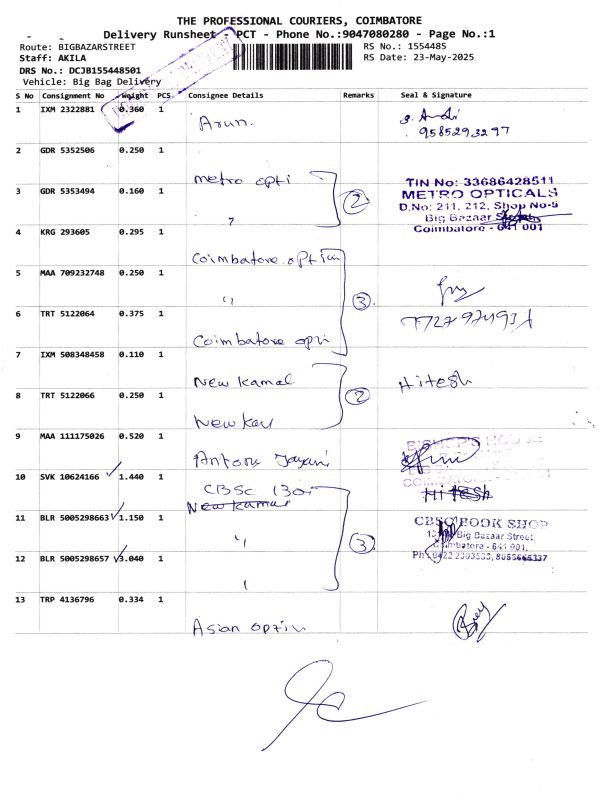 THE PROFESSIONAL COURIERS, COIMBATORE
Delivery Runsheet - PCT - Phone No.:9047080280 - Page No.:1
Route: BIGBAZARSTREET RS No.: 1554485
Staff: AKILA RS Date: 23-May-2025
DRS No.: DCJB155448501
Vehicle: Big Bag Delivery
S No Consignment No Weight PCS Consignee Details Remarks Seal & Signature
1 IXM 2322881 0.360 1
Arun.
9585293297
2 GDR 5352506 0.250 1
metro opti
3 GDR 5353494 0.160 1 2
TIN No: 33686428511
METRO OPTICALS
D.No: 211, 212, Shop No-5
Big Bazaar Street
Coimbatore - 641 001
4 KRG 293605 0.295 1
Coimbatore opti
5 MAA 709232748 0.250 1
"
3.
6 TRT 5122064 0.375 1
Coimbatore opti
7 IXM 508348458 0.110 1
New Kamal Hitesh
8 TRT 5122066 0.250 1 2
New
9 MAA 111175026 0.520 1
Antony
BISHOP'S HOUSE
10 SVK 10624166 1.440 1
CBSC
New Kamal
Hitesh
11 BLR 5005298663 1.150 1
"
3
CBSC BOOK SHOP
Big Bazaar Street,
Coimbatore - 641 001.
12 BLR 5005298657 3.040 1
13 TRP 4136796 0.334 1
Asian opti